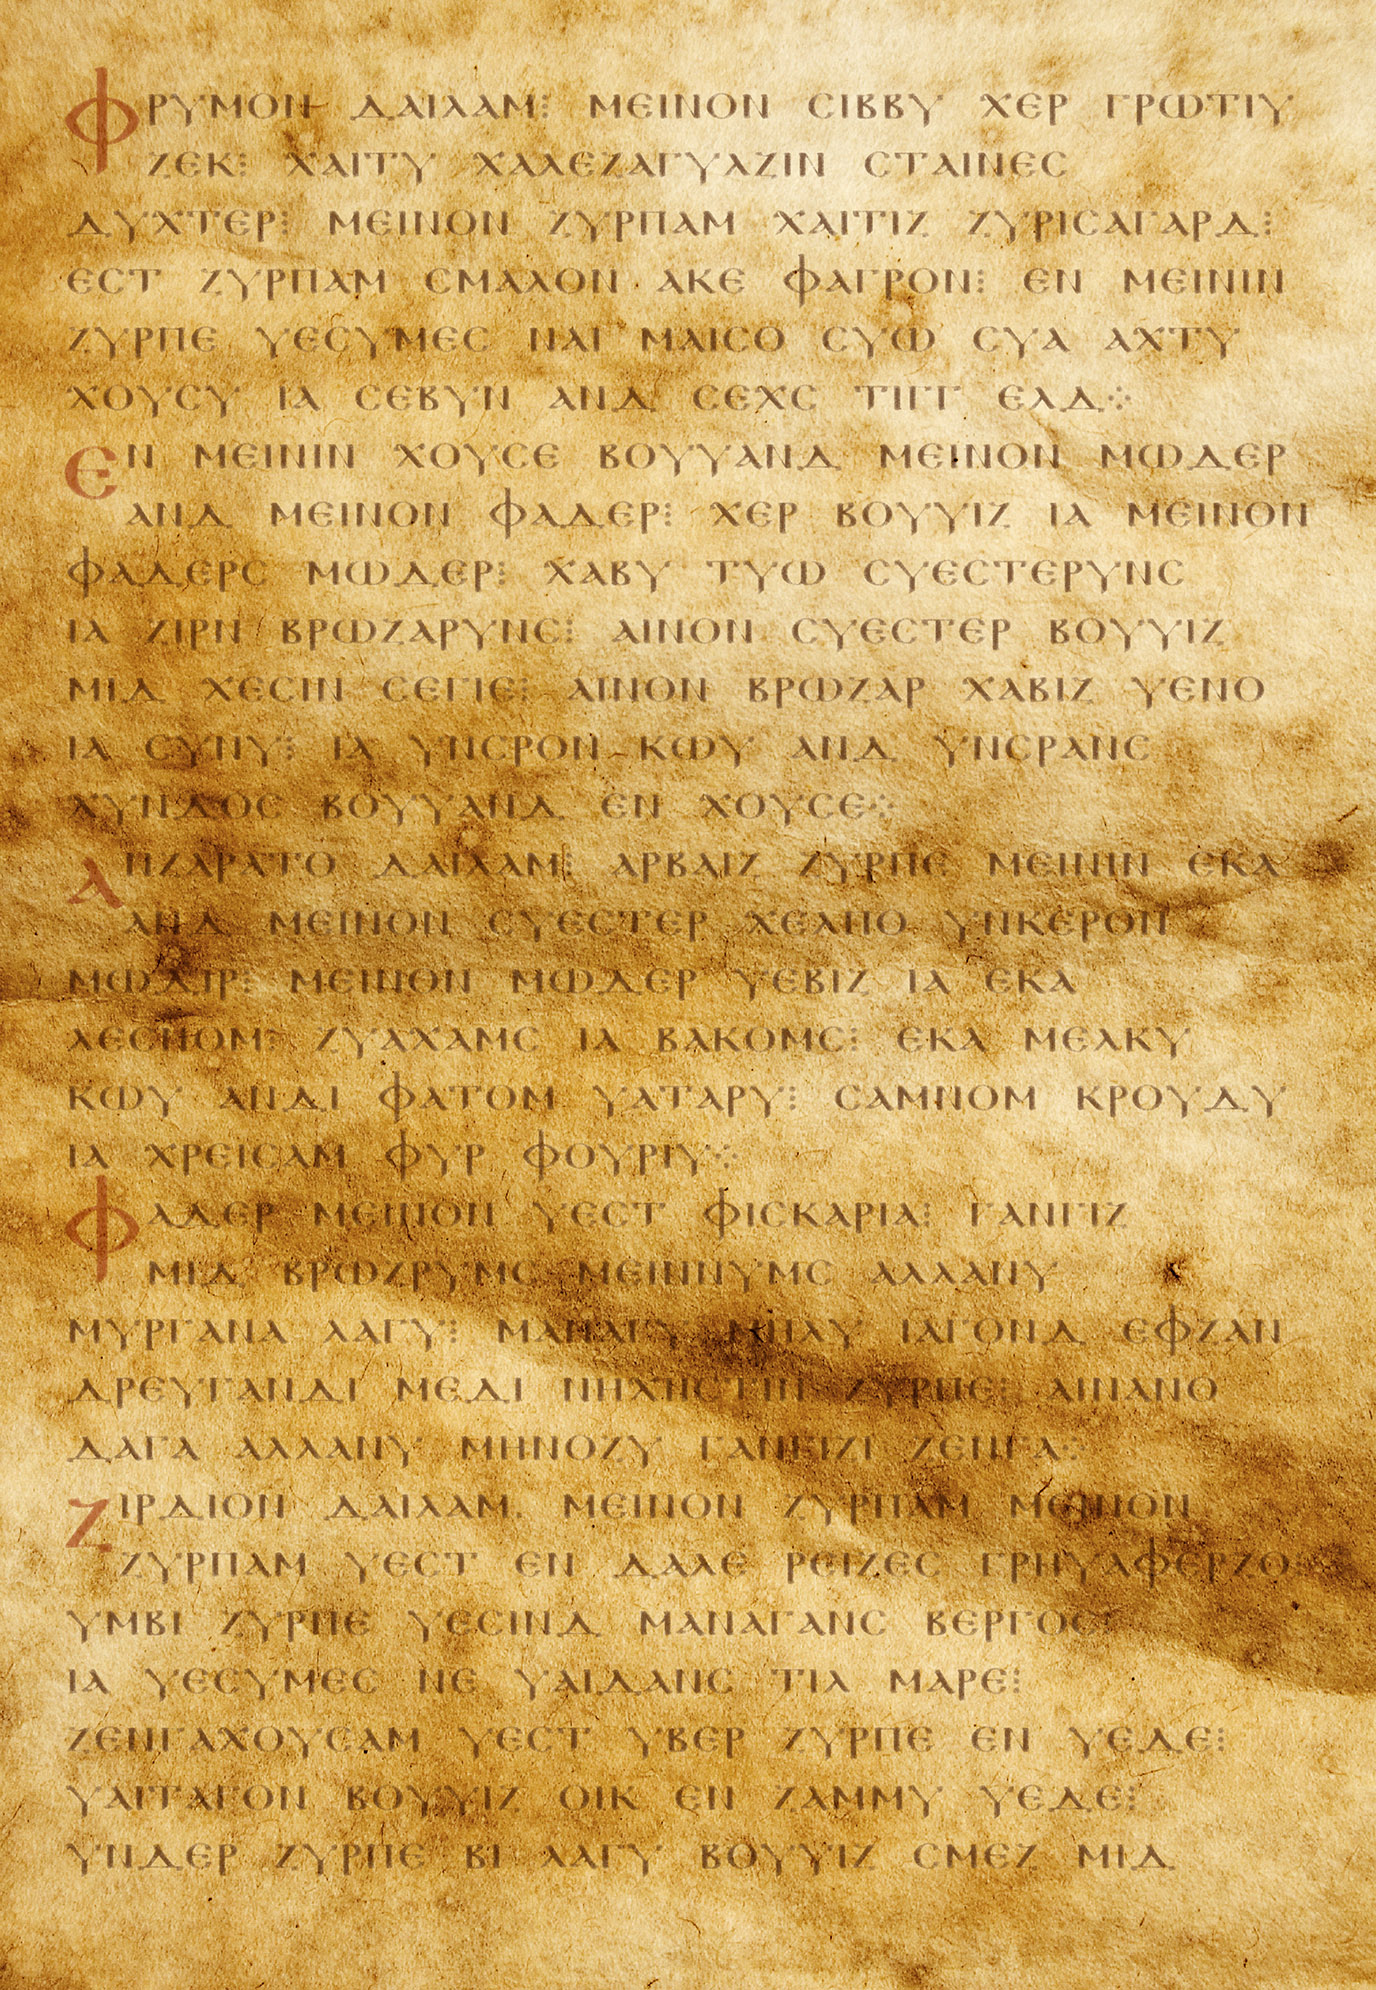 ΦΡΥΜΟΝ ΔΑΙΛΑΜ⁝ ΜΕΙΝΟΝ ϹΙΒΒΥ ΧΕΡ ΓΡΩΤΙΥ
ΖΕΚ⁝ ΧΑΙΤΥ ΧΑΛΕΖΑΓΥΛΖΙΝ ϹΤΑΙΝΕϹ
ΔΥΧΤΕΡ⁝ ΜΕΙΝΟΝ ΖΥΡΠΑΜ ΧΑΙΤΙΖ ΖΥΡΙϹΑΓΑΡΔ⁝
ΕϹΤ ΖΥΡΠΑΜ ϹΜΑΛΟΝ ΑΚΕ ΦΑΓΡΟΝ⁝ ΕΝ ΜΕΙΝΙΝ
ΖΥΡΠΕ ΥΕϹΥΜΕϹ ΝΑΙ ΜΑΙϹΟ ϹΥΩ ϹΥΑ ΑΧΤΥ
ΧΟΥϹΥ ΙΑ ϹΕΒΥΝ ΑΝΔ ϹΕΧϹ ΤΙΓΓ ΕΛΔ⁘
ΕΝ ΜΕΙΝΙΝ ΧΟΥϹΕ ΒΟΥΥΑΝΔ ΜΕΙΝΟΝ ΜΩΔΕΡ
ΑΝΔ ΜΕΙΝΟΝ ΦΑΔΕΡ⁝ ΧΕΡ ΒΟΥΥΙΖ ΙΑ ΜΕΙΝΟΝ
ΦΑΔΕΡϹ ΜΩΔΕΡ⁝ ΧΑΒΥ ΤΥΩ ϹΥΕϹΤΕΡΥΝϹ
ΙΑ ΖΙΡΝ ΒΡΩΖΑΡΥΝϹ⁝ ΑΙΝΟΝ ϹΥΕϹΤΕΡ ΒΟΥΥΙΖ
ΜΙΔ ΧΕϹΙΝ ϹΕΓΙΕ⁝ ΑΙΝΟΝ ΒΡΩΖΑΡ ΧΑΒΙΖ ΥΕΝΟ
ΙΑ ϹΥΝΥ⁝ ΙΑ ΥΝϹΡΟΝ ΚΩΥ ΑΝΔ ΥΝϹΡΑΝϹ
ΧΥΝΔΟϹ ΒΟΥΥΑΝΔ ΕΝ ΧΟΥϹΕ⁘
ΑΝΖΑΡΑΤΟ ΔΑΙΛΑΜ⁝ ΑΡΒΑΙΖ ΖΥΡΠΕ ΜΕΙΝΙΝ ΕΚΑ
ΑΝΔ ΜΕΙΝΟΝ ϹΥΕϹΤΕΡ ΧΕΛΠΟ ΥΝΚΕΡΟΝ
ΜΩΔΙΡ⁝ ΜΕΙΝΟΝ ΜΩΔΕΡ ΥΕΒΙΖ ΙΑ ΕΚΑ
ΛΕϹΝΟΜ⁝ ΖΥΑΧΑΜϹ ΙΑ ΒΑΚΟΜϹ⁝ ΕΚΑ ΜΕΛΚΥ
ΚΩΥ ΑΝΔΙ ΦΑΤΟΜ ΥΑΤΑΡΥ⁝ ϹΑΜΝΟΜ ΚΡΟΥΔΥ
ΙΑ ΧΡΕΙϹΑΜ ΦΥΡ ΦΟΥΡΙΥ⁘
ΦΑΔΕΡ ΜΕΙΝΟΝ ΥΕϹΤ ΦΙϹΚΑΡΙΑ⁝ ΓΑΝΓΙΖ
ΜΙΔ ΒΡΩΖΡΥΜϹ ΜΕΙΝΝΥΜϹ ΑΛΛΑΝΥ
ΜΥΡΓΑΝΑ ΛΑΓΥ⁝ ΜΑΝΑΓΥ ΜΙΛΥ ΙΑΓΟΝΔ ΕΦΖΑΝ
ΔΡΕΥΓΑΝΔΙ ΜΕΔΙ ΝΗΧΗϹΤΙΝ ΖΥΡΠΕ⁝ ΑΙΝΑΝΟ
ΔΑΓΑ ΑΛΛΑΝΥ ΜΗΝΟΖΥ ΓΑΝΓΙΖΙ ΖΕΝΓΑ⁘
ΖΙΡΔΙΟΝ ΔΑΙΛΑΜ⁝ ΜΕΙΝΟΝ ΖΥΡΠΑΜ ΜΕΙΝΟΝ
ΖΥΡΠΑΜ ΥΕϹΤ ΕΝ ΔΑΛΕ ΡΕΙΖΕϹ ΓΡΗΥΑΦΕΡΖΟ⁝
ΥΜΒΙ ΖΥΡΠΕ ΥΕϹΙΝΔ ΜΑΝΑΓΑΝϹ ΒΕΡΓΟϹ⁝
ΙΑ ΥΕϹΥΜΕϹ ΝΕ ΥΑΙΔΑΝϹ ΤΙΛ ΜΑΡΕ⁝
ΖΕΝΓΑΧΟΥϹΑΜ ΥΕϹΤ ΥΒΕΡ ΖΥΡΠΕ ΕΝ ΥΕΔΕ⁝
ΥΑΙΤΑΓΟΝ ΒΟΥΥΙΖ ΟΙΚ ΕΝ ΖΑΜΜΥ ΥΕΔΕ⁝
ΥΝΔΕΡ ΖΥΡΠΕ ΒΙ ΛΑΓΥ ΒΟΥΥΙΖ ϹΜΕΖ ΜΙΔ